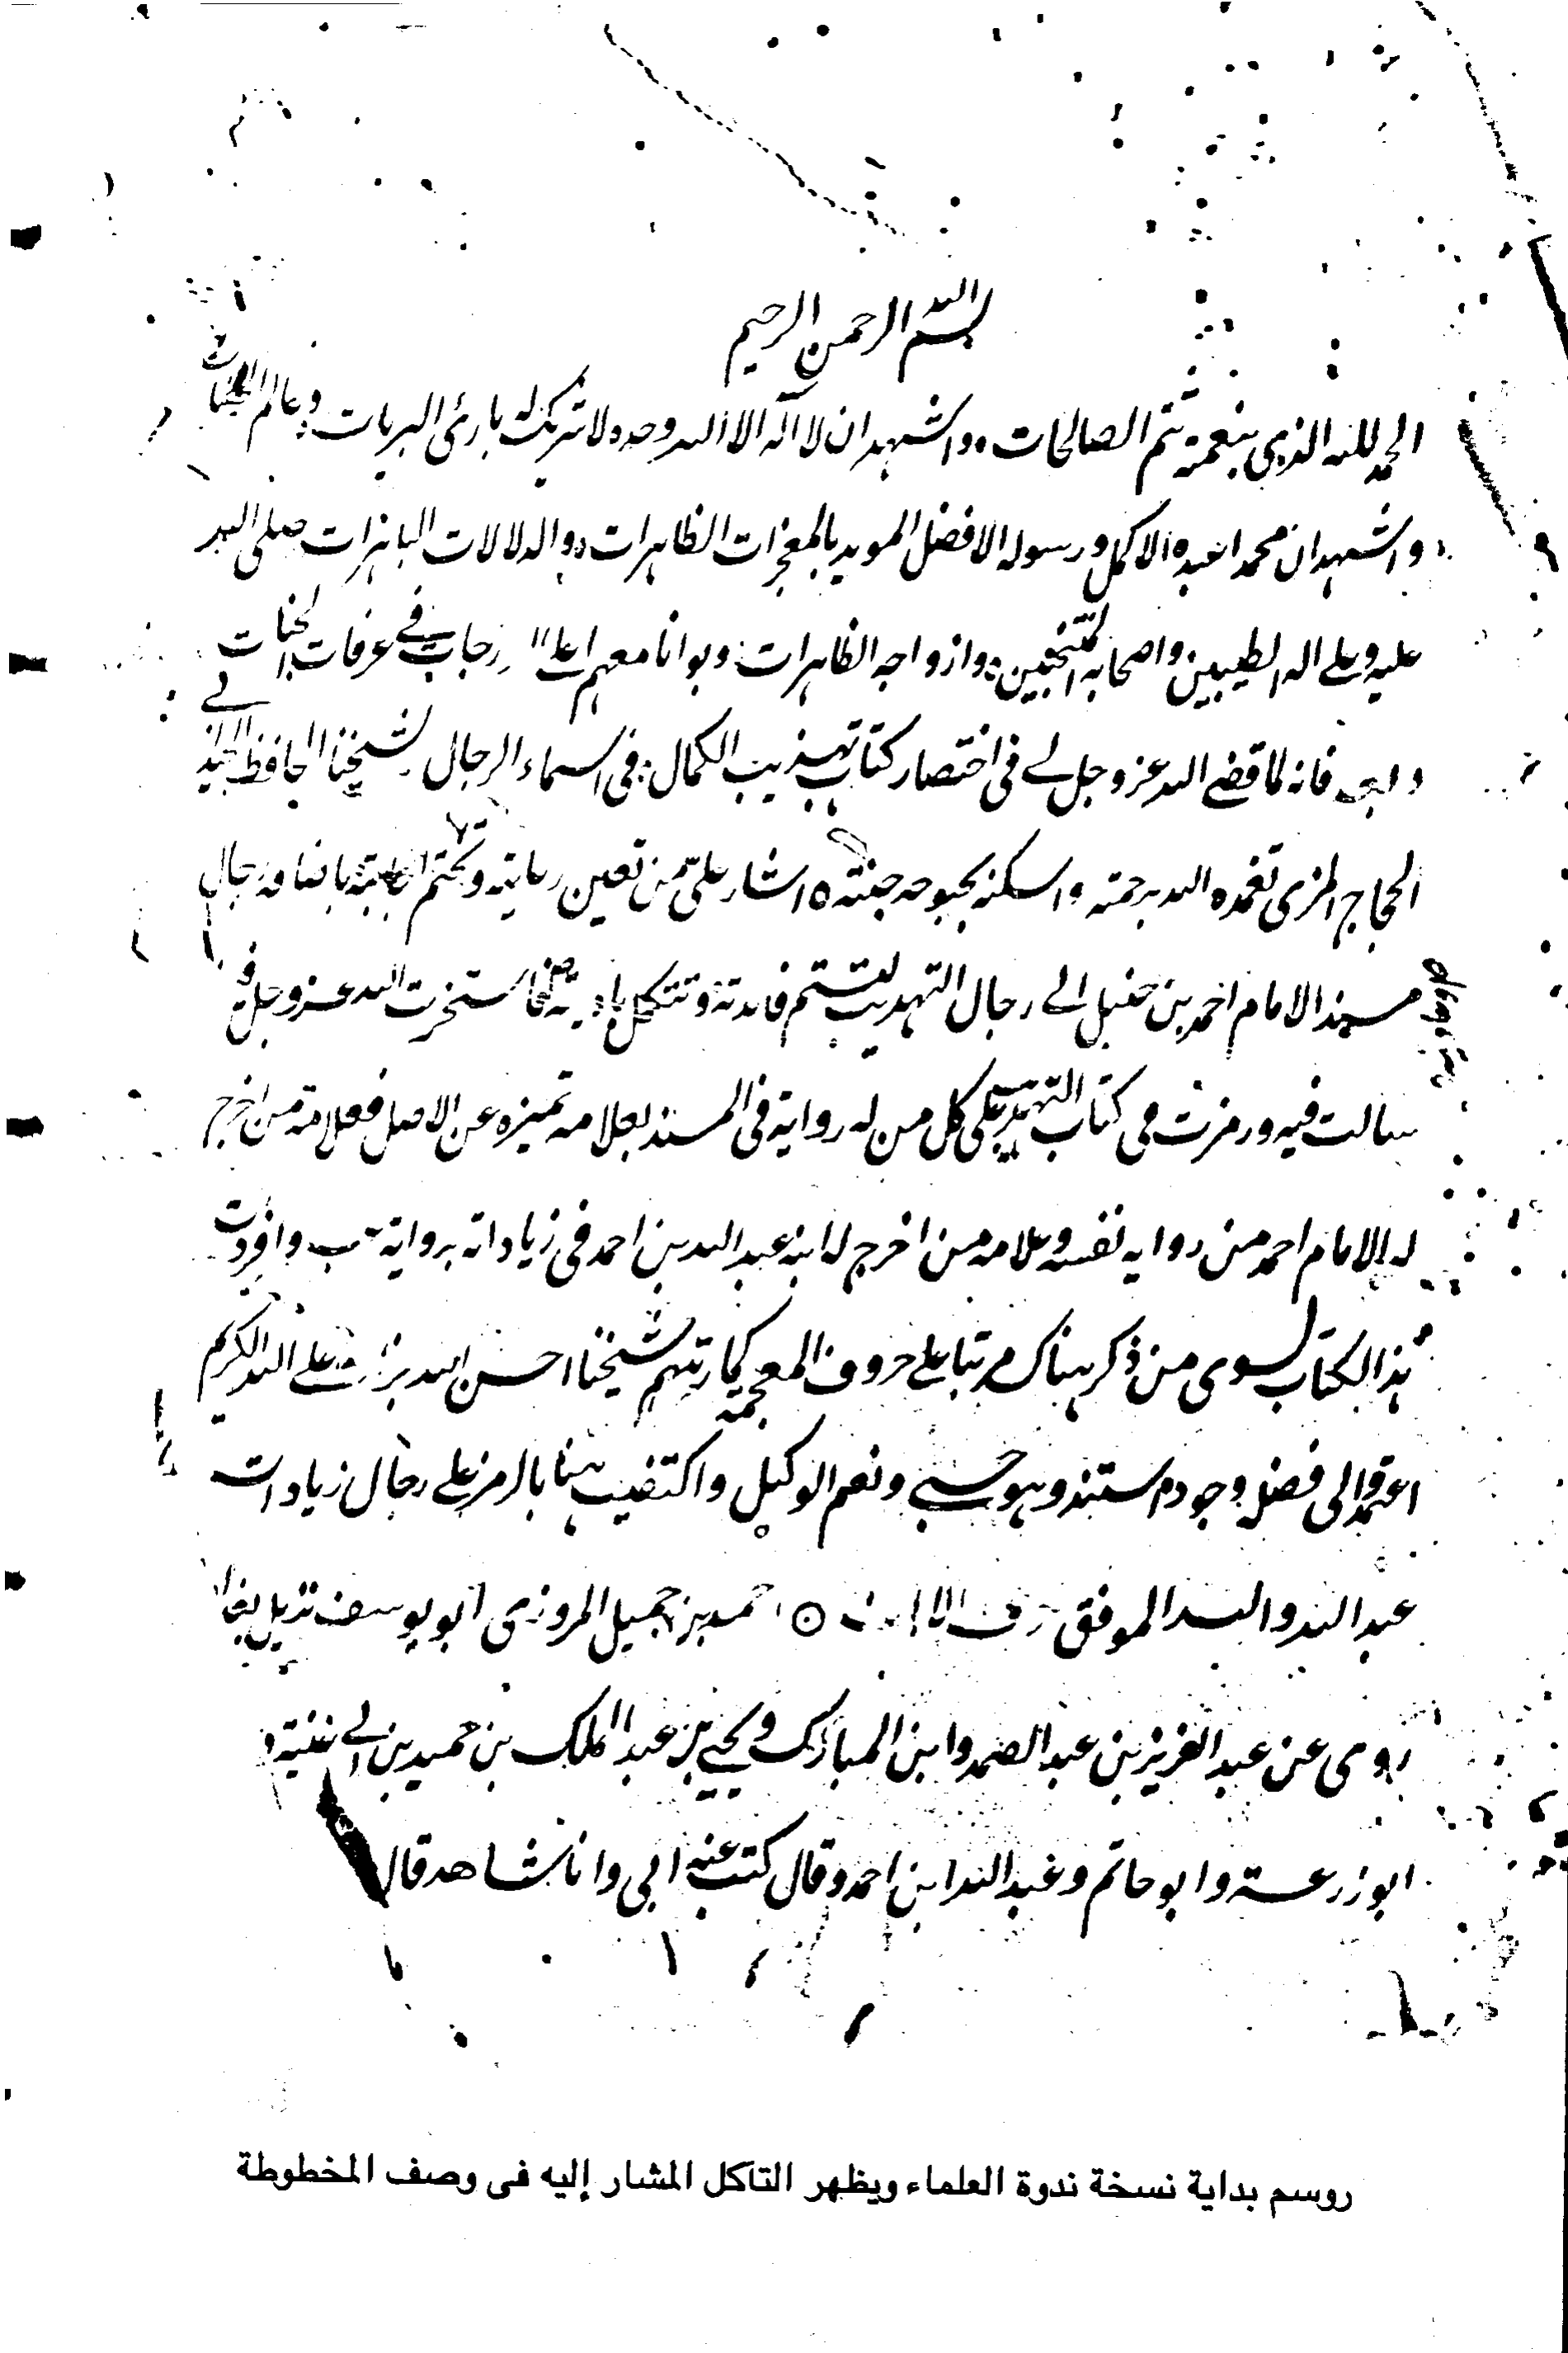 بسم الله الرحمن الرحيم
الحمد لله الذي بنعمته تتم الصالحات واشهد ان لا اله الا الله وحده لا شريك له بارئ البريات وعالم الخفيات
واشهد ان محمدا عبده الاكمل ورسوله الافضل المويد بالمعجزات الظاهرات والدلالات الباهرات صلى الله
عليه وعلى اله الطيبين واصحابه المنتخبين وازواجه الطاهرات وبوانا معهم اعلا في غرفات الجنات
وبعد فانه لما قضى الله عز وجل لي في اختصار كتاب تهذيب الكمال في اسماء الرجال لشيخنا الحافظ
الحجاج المزي تغمده الله برحمته واسكنه بحبوحه جنته اشار علي من تعين رعايته وتحتم اجابته باضافة رجال
مسند الامام احمد بن حنبل الى رجال التهذيب لتتم فايدته وتتكمل فاستخرت الله عز وجل في
سالت فيه ورمزت في كتاب التهذيب على كل من له رواية في المسند بعلامه تميزه عن الاصل فعلامة من اخرج
له الامام احمد من روايه نفسه وعلامه من اخرج له ابنه عبد الله بن احمد في زياداته برواية ب وافردت
هذا الكتاب لسوى من ذكر هناك مرتبا على حروف المعجم كما رتبهم شيخنا احسن الله على الله الكريم
اعتمد والى فضله وجوده استند وهو حسبي ونعم الوكيل واكتفيت هنا بالرمز على رجال زيادات
عبد الله والله الموفق حرف الالف احمد بن جميل المروزي ابو يوسف نزيل بغداد
روى عن عبد العزيز بن عبد الصمد وابن المبارك ويحيى بن عبد الملك بن حميد بن ابي غنية و
ابو زرعة وابو حاتم وعبد الله ابن احمد وقال كتب عنه ابي وانا شاهد قال
روسم بداية نسخة ندوة العلماء ويظهر التاكل المشار إليه فى وصف المخطوطة